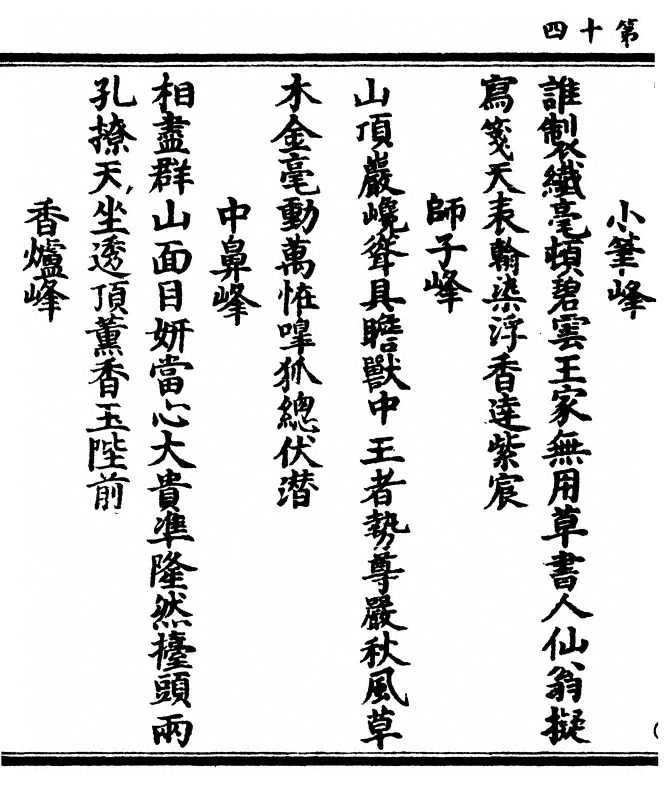 第十四
小筆峰
誰製纖毫頓碧雲王家無用草書人仙翁擬
寫箋天表翰染浮香達紫宸
師子峰
山頂巖嶢聳具瞻獸中王者勢尊嚴秋風草
木金毫動萬恠嘷狐總伏潜
中鼻峰
相盡群山面目妍當心大貴準隆然擡頭兩
孔撩天坐透頂薰香玉陛前
香爐峰